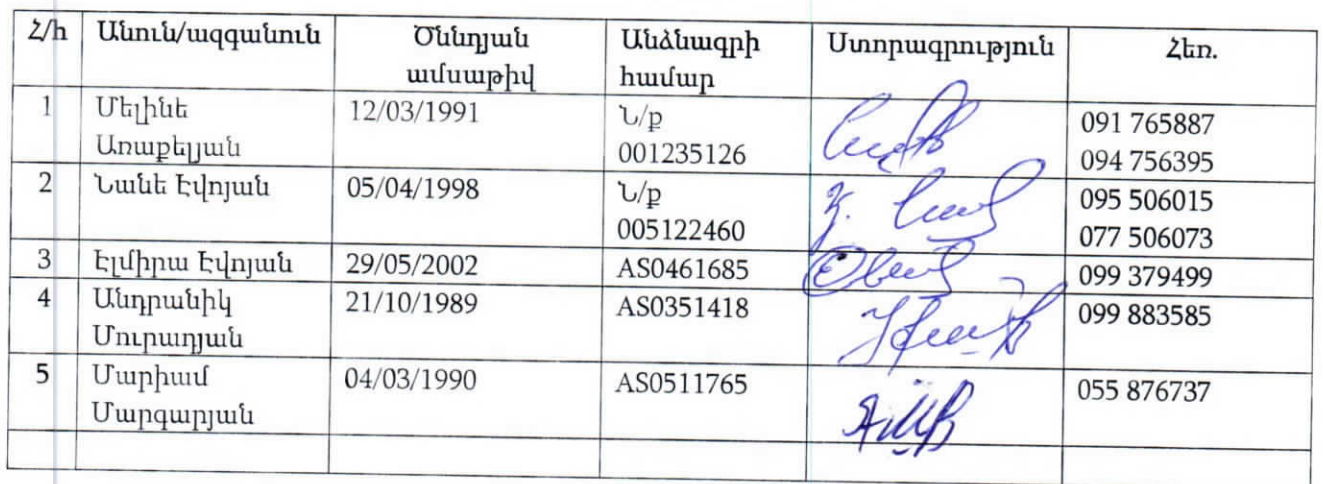 Հ/հ Անուն/ազգանուն Ծննդյան ամսաթիվ Անձնագրի համար Ստորագրություն Հեռ.
1 Մելինե Առաքելյան 12/03/1991 Ն/ք 001235126 091 765887 094 756395
2 Նանե Էվոյան 05/04/1998 Ն/ք 005122460 095 506015 077 506073
3 Էլմիրա Էվոյան 29/05/2002 AS0461685 099 379499
4 Անդրանիկ Մուրադյան 21/10/1989 AS0351418 099 883585
5 Մարիամ Մարգարյան 04/03/1990 AS0511765 055 876737